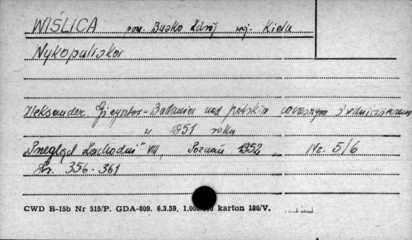 WIŚLICA pow. Busko Zdrój woj. Kielce
Wykopaliska
Aleksander Gieysztor - Badania nad polskim wczesnym średniowieczem
w 1951 roku
"Przegląd Zachodni" VIII, Poznań 1952 Nr. 5/6
str. 356-361
CWD B-15b Nr 515/P. GDA-809. 6.3.59, 1.000.000 karton 180/V.